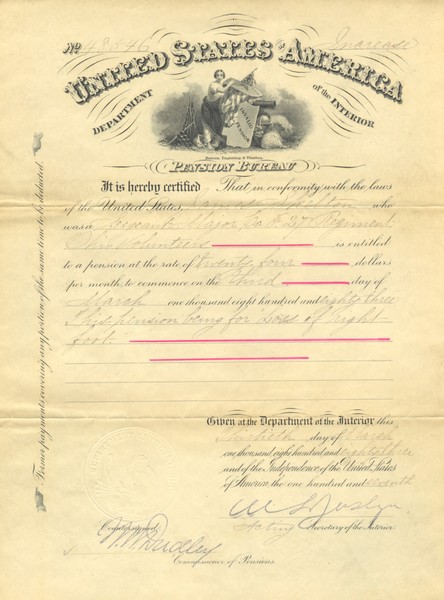 No 48846 Increase
UNITED STATES OF AMERICA
DEPARTMENT of the INTERIOR
PENSION BUREAU
It is hereby certified That in conformity with the laws
of the United States, who
was a Sergeant Major Co F 27 Regiment
Ohio Volunteers is entitled
to a pension at the rate of twenty four dollars
per month, to commence on the third day of
March one thousand eight hundred and eighty three
This pension being for loss of right
foot.
Former payments covering any portion of the same time to be deducted.
Given at the Department of the Interior this
day of March
one thousand eight hundred and eighty three
and of the Independence of the United States
of America the one hundred and seventh
Acting Secretary of the Interior.
Countersigned,
W. W. Dudley
Commissioner of Pensions.